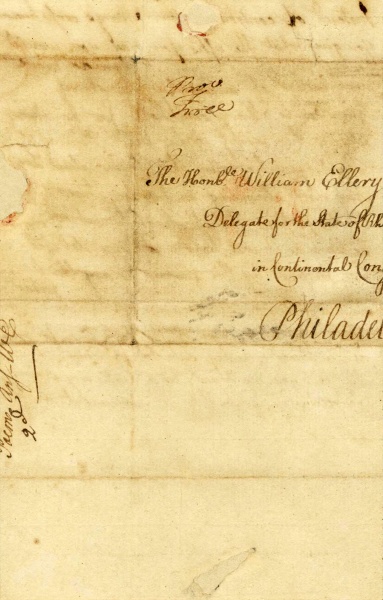 Free
The Honb.le William Ellery
Delegate for the State of Rh
in Continental Con
Philadel
2d